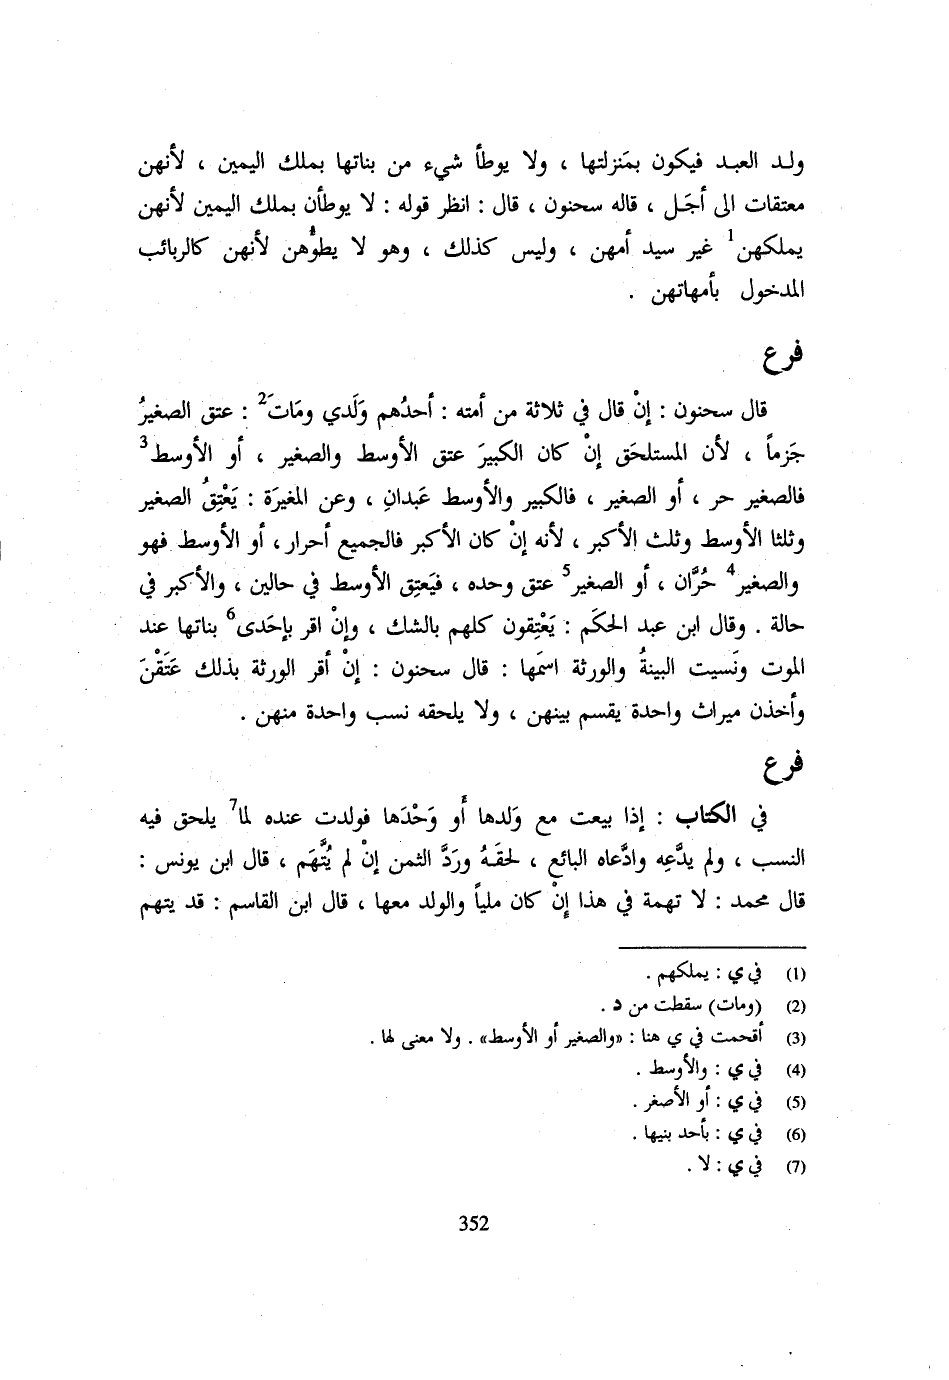 ولد العبد فيكون بمَنزلتها ، ولا يوطأ شيء من بناتها بملك اليمين ، لأنهن
معتقات الى أجَل ، قاله سحنون ، قال : انظر قوله : لا يوطأن بملك اليمين لأنهن
يملكهن1 غير سيد أمهن ، وليس كذلك ، وهو لا يطؤُهن لأنهن كالربائب
المدخول بأمهاتهن .
فرع
قال سحنون : إنْ قال في ثلاثة من أمته : أحدُهم وَلَدي ومَاتَ2 : عتق الصغيرُ
جَزماً ، لأن المستلحَق إنْ كان الكبيرَ عتق الأوسط والصغير ، أو الأوسط3
فالصغير حر ، أو الصغير ، فالكبير والأوسط عَبدانِ ، وعن المغيرَة : يَعْتِقُ الصغير
وثلثا الأوسط وثلث الأكبر ، لأنه إنْ كان الأكبر فالجميع أحرار ، أو الأوسط فهو
والصغير4 حُرَّان ، أو الصغير5 عتق وحده ، فيَعتِق الأوسط في حالين ، والأكبر في
حالة . وقال ابن عبد الحكَم : يَعْتِقون كلهم بالشك ، وإنْ اقر بإحَدى6 بناتها عند
الموت ونَسيت البينةُ والورثة اسمَها : قال سحنون : إنْ أقر الورثة بذلك عَتَقْنَ
وأخذن ميراث واحدة يقسم بينهن ، ولا يلحقه نسب واحدة منهن .
فرع
في الكتاب : إذا بيعت مع وَلدها أَو وَحْدَها فولدت عنده لما7 يلحق فيه
النسب ، ولم يدَّعِه وادَّعاه البائع ، لحقَهُ ورَدَّ الثمن إنْ لم يُتَّهَم ، قال ابن يونس :
قال محمد : لا تهمة في هذا إنْ كان ملياً والولد معها ، قال ابن القاسم : قد يتهم
(1) في ي : يملكهم .
(2) (ومات) سقطت من د .
(3) أقحمت في ي هنا : «والصغير أو الأوسط» . ولا معنى لها .
(4) في ي : والأوسط .
(5) في ي : أو الأصغر .
(6) في ي : بأحد بنيها .
(7) في ي : لا .
352